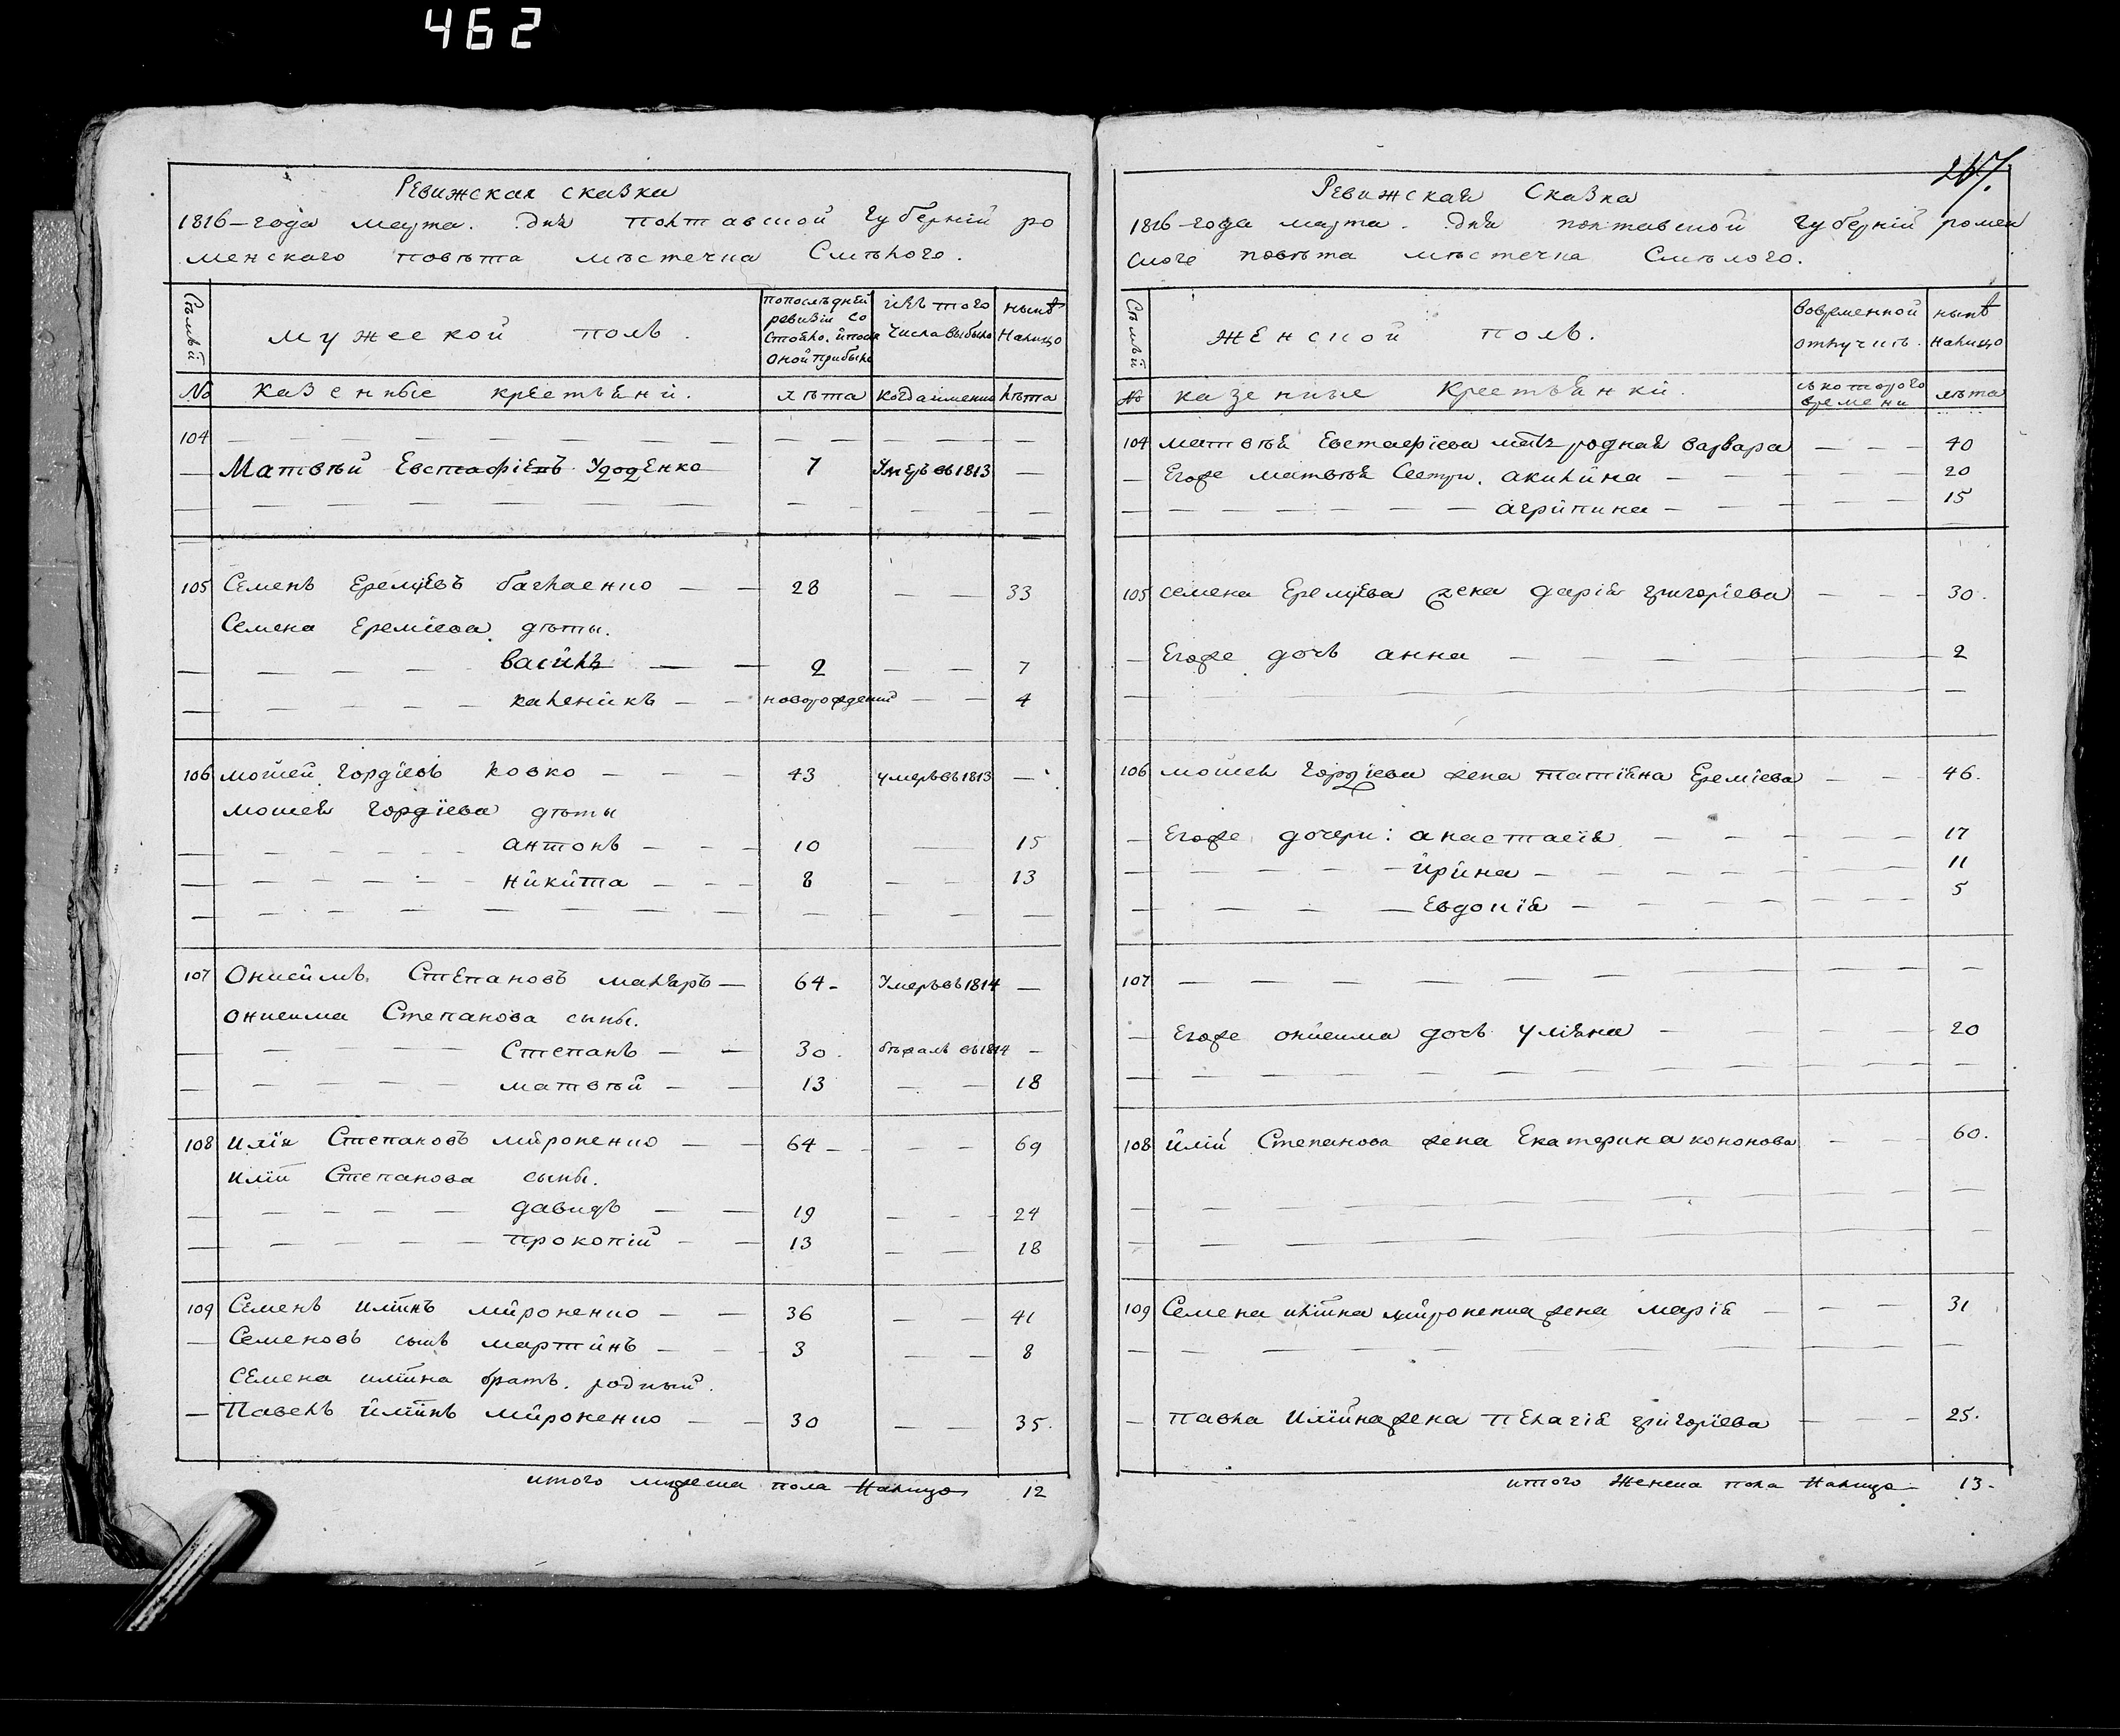 462
Ревижская сказка
1816-года марта. дня полтавской губерній ро
менскаго повѣта мѣстечка Смѣлого.
Семьй
мужеской полъ.
попослѣдней ревизіи состояло, и после оной прибыло
изъ того числа выбыло
нынѣ налицо
№ казенные крестьяни.
лѣта
когда именно
лѣта
104
Матвѣй Евстафіевъ Удоденко 7 Умеръ въ 1813
105 Семенъ Еремѣевъ Баглаенко 28 33
Семена Еремѣева дѣты.
василь 2 7
каленикъ новорожденый 4
106 мойсей Гордіевъ Ковко 43 умеръ въ 1813
мойсея Гордіева дѣты
антонъ 10 15
никита 8 13
107 Онисимъ Степановъ маляръ 64 Умеръ въ 1814
онисима Степанова сыны.
Степанъ 30 бѣжалъ въ 1814
матвѣй 13 18
108 илія Степановъ мироненко 64 69
иліи Степанова сыны.
давидъ 19 24
прокопій 13 18
109 Семенъ иліинъ мироненко 36 41
Семеновъ сынъ мартинъ 3 8
Семена иліина братъ родный.
Павелъ иліинъ мироненко 30 35
итого мужеска пола налицо 12
257
Ревижская Сказка
1816-года марта. дня полтавской губерній ромен
ского повѣта мѣстечка Смѣлого.
Семьй
женской полъ.
вовременной отлучкѣ.
нынѣ налицо
№ казенные крестьянки.
съ которого времени
лѣта
104 матвѣя Евстафіева мать родная варвара 40
Егоже матвѣя Сестры. акилина 20
агрипина 15
105 семена Еремѣева жена дарія григоріева 30.
Егоже дочь анна 2
106 мойсея Гордіева жена татіяна Еремѣева 46.
Егоже дочери: анастасія 17
ирина 11
Евдокія 5
107
Егоже онисима дочь уліяна 20
108 иліи Степанова жена Екатерина кононова 60.
109 Семена иліина мироненка жена марія 31
павла иліина жена пелагія григоріева 25.
итого женска пола налицо 13.